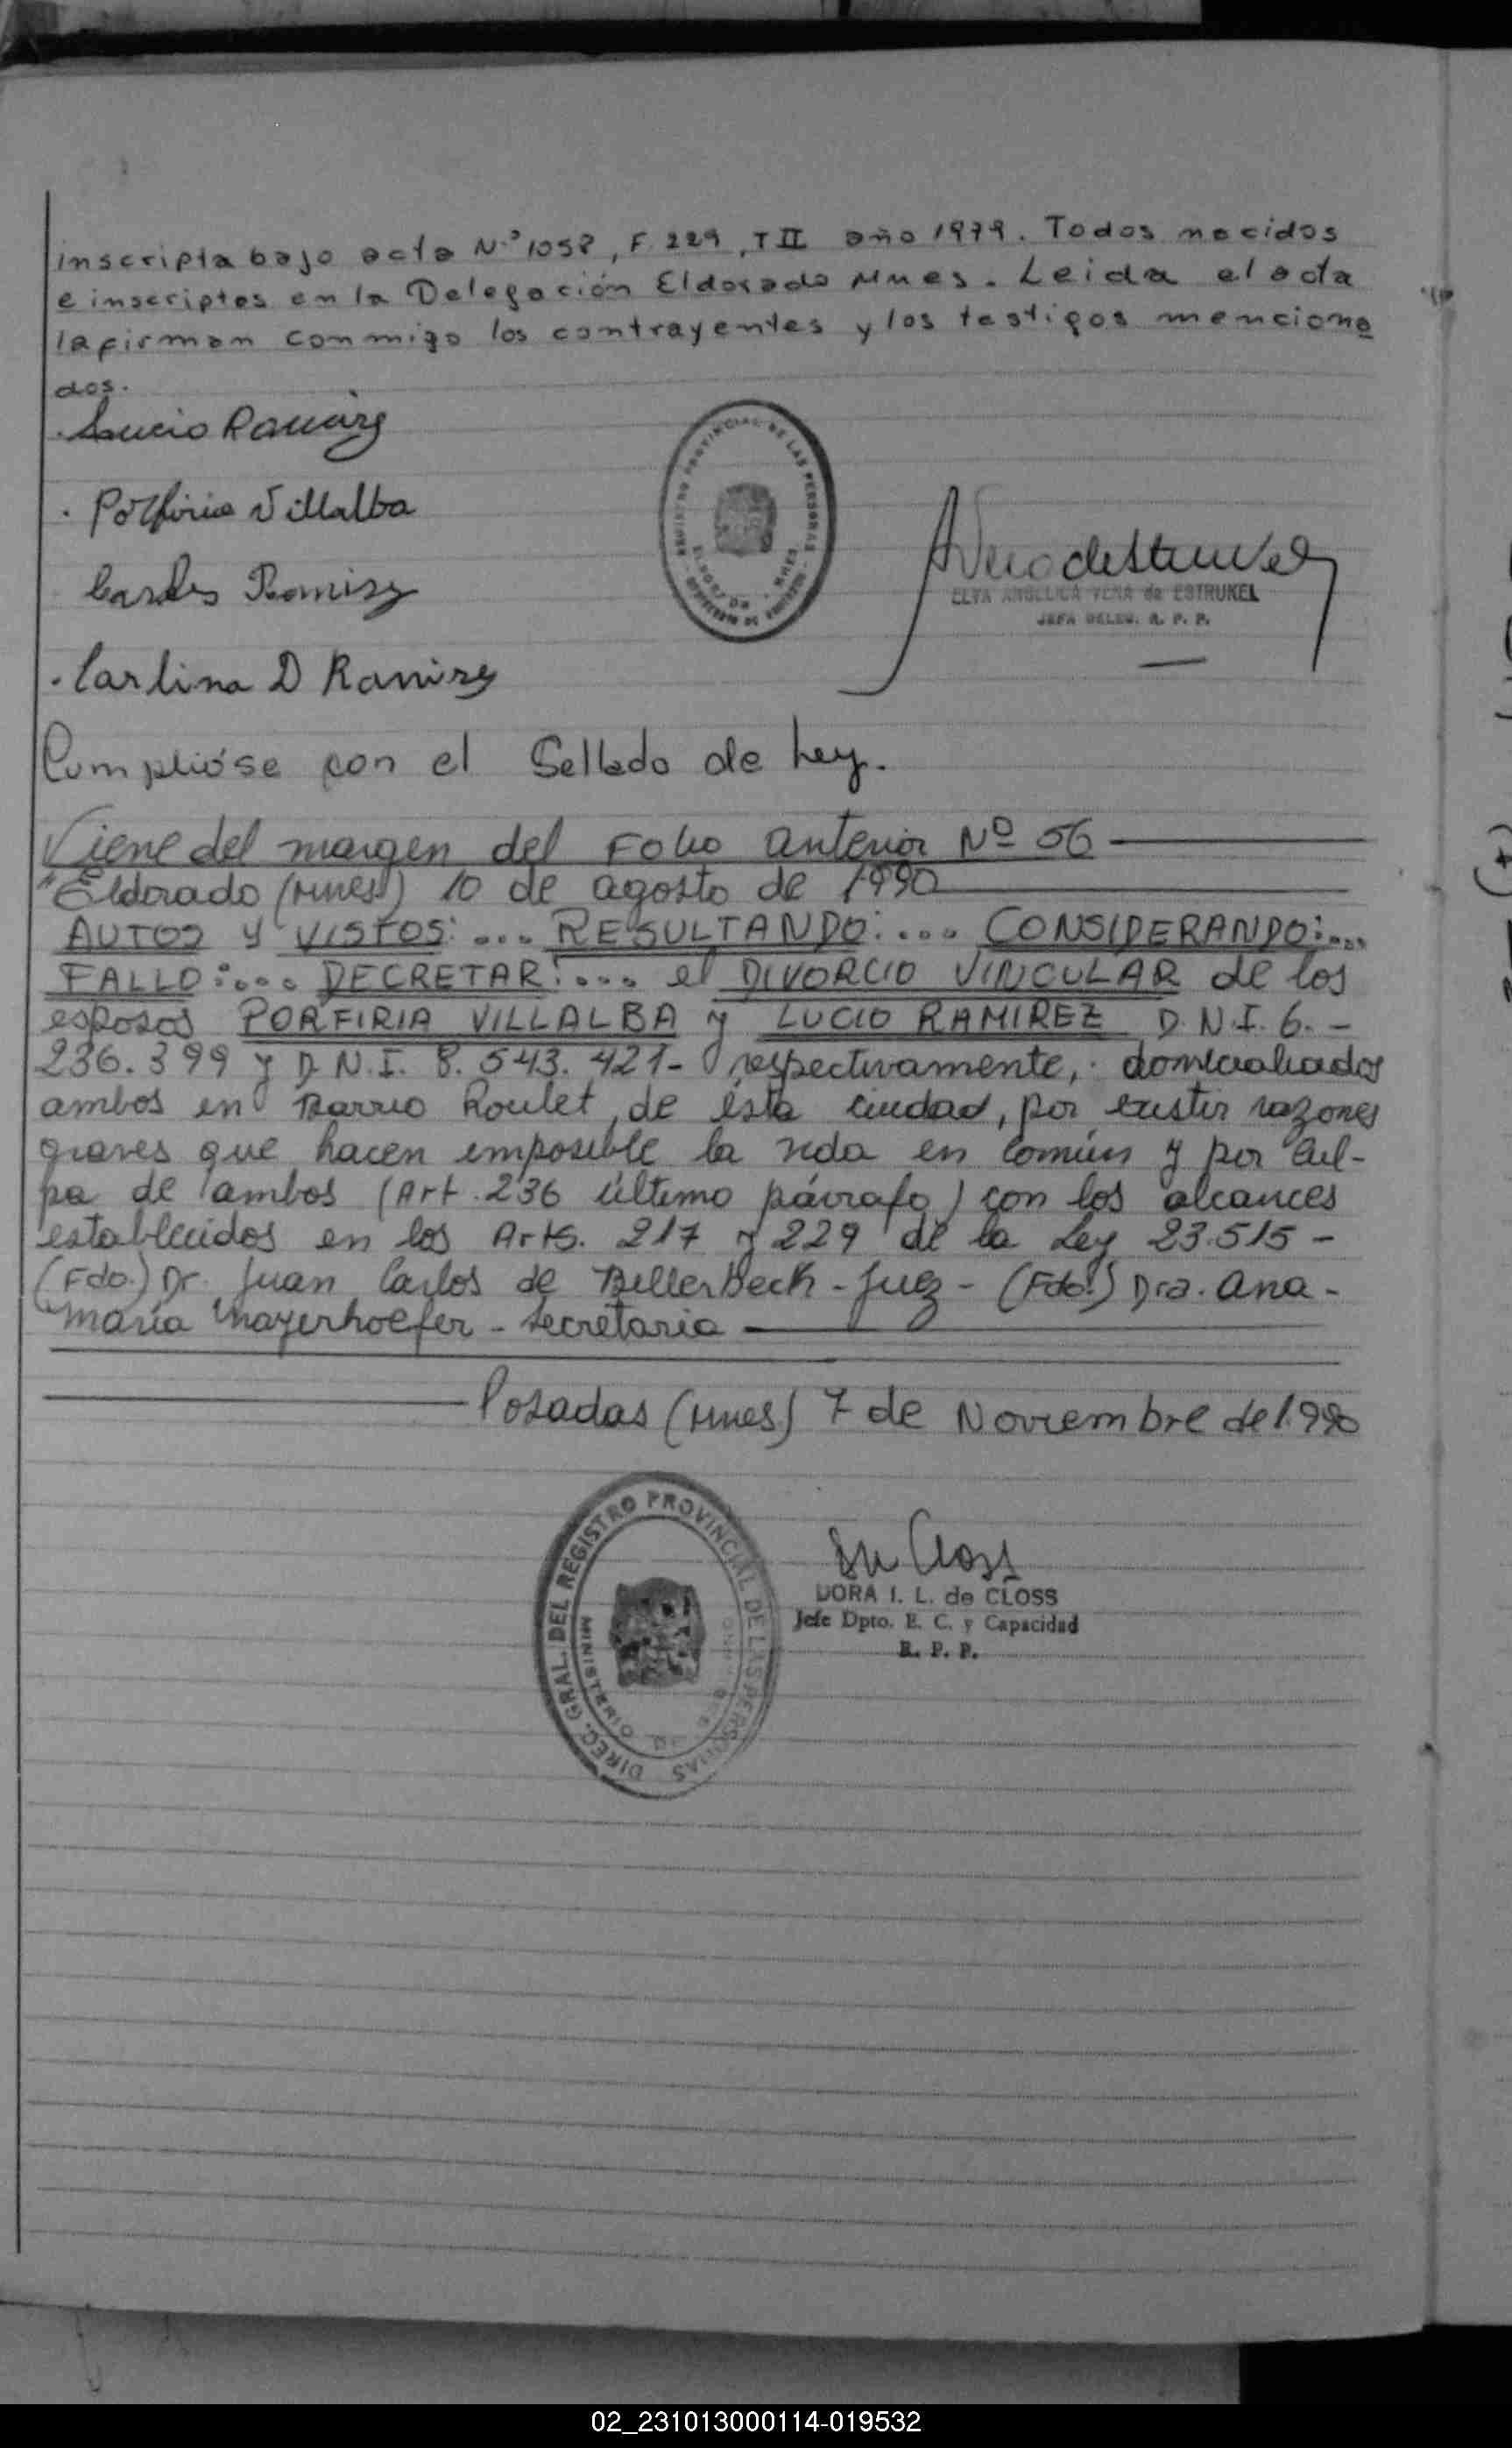 inscripta bajo acta N.º 1058, F. 229, T II año 1979. Todos nacidos
e inscriptos en la Delegación Eldorado Mnes. Leida el acta
la firman conmigo los contrayentes y los testigos menciona
dos.
Lucio Ramirez
Porfiria Villalba
Carlos Ramirez
Carlina D Ramirez
REGISTRO PROVINCIAL DE LAS PERSONAS
ELDORADO - MNES.
ELVA ANGELICA VERA de ESTRUKEL
JEFA DELEG. R. P. P.
Cumplióse con el Sellado de Ley.
Viene del margen del Folio anterior Nº 56
"Eldorado (Mnes) 10 de agosto de 1990
AUTOS y VISTOS: ... RESULTANDO: .... CONSIDERANDO: ...
FALLO: .... DECRETAR: .... el DIVORCIO VINCULAR de los
esposos PORFIRIA VILLALBA y LUCIO RAMIREZ D.N.I. 6.-
236.399 y D.N.I. 8.543.421- respectivamente, domiciliados
ambos en Barrio Roulet, de ésta ciudad, por existir razones
graves que hacen imposible la vida en común y por Cul-
pa de ambos (Art. 236 último párrafo) con los alcances
establecidos en los Arts. 217 y 229 de la Ley 23.515 -
(Fdo.) Dr. Juan Carlos de Billerbeck - Juez - (Fdo.) Dra. Ana -
María Mayerhoefer - Secretaria
Posadas (Mnes) 7 de Noviembre de 1.990
DIREC. GRAL. DEL REGISTRO PROVINCIAL DE LAS PERSONAS
MINISTERIO DE
DORA I. L. de CLOSS
Jefe Dpto. E. C. y Capacidad
R. P. P.
02_231013000114-019532